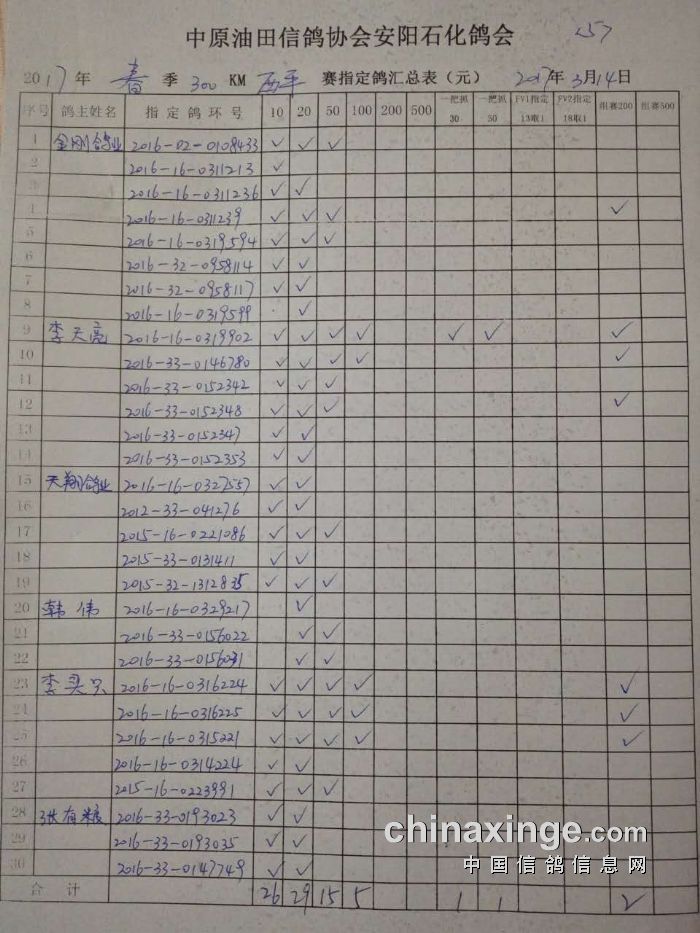 中原油田信鸽协会安阳石化鸽会
257
2017年 春 季 300 KM 西平 赛指定鸽汇总表（元） 2017年3月14日
序号 鸽主姓名 指定鸽环号 10 20 50 100 200 500 一把抓30 一把抓50 FV1指定13取1 FV2指定18取1 组赛200 组赛500
1 金刚鸽业 2016-02-0108433 ✓ ✓ ✓
2 2016-16-0311213 ✓
3 2016-16-0311236 ✓ ✓
4 2016-16-0311239 ✓ ✓ ✓ ✓
5 2016-16-0319594 ✓ ✓ ✓
6 2016-32-0958114 ✓ ✓
7 2016-32-0958117 ✓ ✓
8 2016-16-0319599 ✓
9 李天亮 2016-16-0319902 ✓ ✓ ✓ ✓ ✓ ✓ ✓
10 2016-33-0146780 ✓ ✓ ✓ ✓ ✓
11 2016-33-0152342 ✓ ✓ ✓
12 2016-33-0152348 ✓ ✓ ✓ ✓
13 2016-33-0152347 ✓ ✓
14 2016-33-0152353 ✓ ✓
15 天翔鸽业 2016-16-0327557 ✓ ✓
16 2012-33-041276 ✓ ✓
17 2015-16-0221086 ✓ ✓ ✓
18 2015-33-0131411 ✓ ✓
19 2015-32-1312835 ✓ ✓ ✓
20 韩伟 2016-16-0329217 ✓
21 2016-33-0156022 ✓ ✓
22 2016-33-0156031 ✓ ✓
23 李买只 2016-16-0316224 ✓ ✓ ✓ ✓ ✓
24 2016-16-0316225 ✓ ✓ ✓ ✓ ✓
25 2016-16-0315221 ✓ ✓ ✓ ✓ ✓
26 2016-16-0314224 ✓ ✓
27 2015-16-0223991 ✓ ✓ ✓
28 张有粮 2016-33-0193023 ✓ ✓
29 2016-33-0193035 ✓ ✓
30 2016-33-0147749 ✓ ✓
合计 26 29 15 5 1 1
chinaxinge.com
中国信鸽信息网